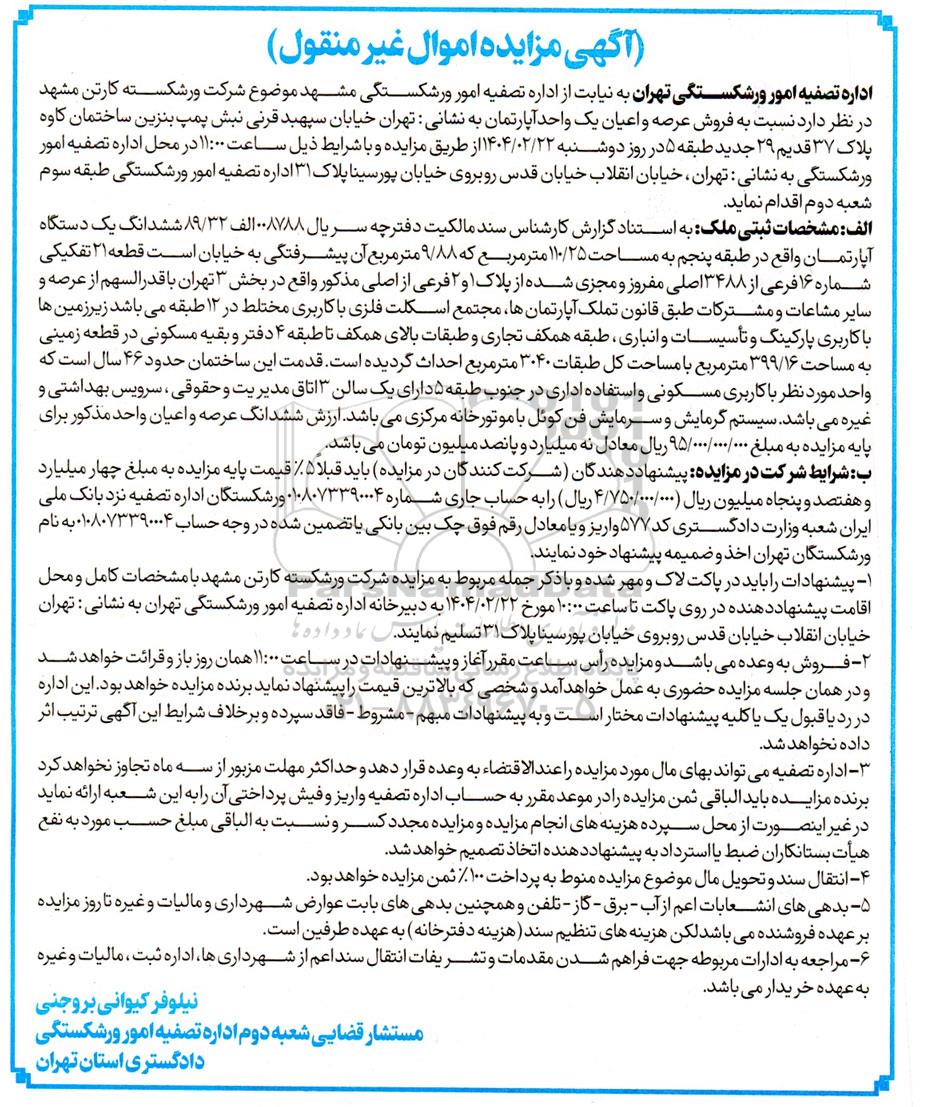 (آگهی مزایده اموال غیر منقول)
اداره تصفیه امور ورشکستگی تهران به نیابت از اداره تصفیه امور ورشکستگی مشهد موضوع شرکت ورشکسته کارتن مشهد
در نظر دارد نسبت به فروش عرصه و اعیان یک واحد آپارتمان به نشانی : تهران خیابان سپهبد قرنی نبش پمپ بنزین ساختمان کاوه
پلاک ۳۷ قدیم ۲۹ جدید طبقه ۵ در روز دوشنبه ۱۴۰۴/۰۲/۲۲ از طریق مزایده و با شرایط ذیل ساعت ۱۱:۰۰ در محل اداره تصفیه امور
ورشکستگی به نشانی : تهران ، خیابان انقلاب خیابان قدس روبروی خیابان پورسینا پلاک ۳۱ اداره تصفیه امور ورشکستگی طبقه سوم
شعبه دوم اقدام نماید.
الف: مشخصات ثبتی ملک: به استناد گزارش کارشناس سند مالکیت دفترچه سریال ۰۰۸۷۸۸ الف ۸۹/۳۲ ششدانگ یک دستگاه
آپارتمان واقع در طبقه پنجم به مساحت ۱۱۰/۲۵ مترمربع که ۹/۸۸ مترمربع آن پیشرفتگی به خیابان است قطعه ۲۱ تفکیکی
شماره ۱۶ فرعی از ۳۴۸۸ اصلی مفروز و مجزی شده از پلاک ۱ و ۲ فرعی از اصلی مذکور واقع در بخش ۳ تهران با قدرالسهم از عرصه و
سایر مشاعات و مشترکات طبق قانون تملک آپارتمان ها، مجتمع اسکلت فلزی با کاربری مختلط در ۱۲ طبقه می باشد زیرزمین ها
با کاربری پارکینگ و تأسیسات و انباری ، طبقه همکف تجاری و طبقات بالای همکف تا طبقه ۴ دفتر و بقیه مسکونی در قطعه زمینی
به مساحت ۳۹۹/۱۶ مترمربع با مساحت کل طبقات ۳۰۴۰ مترمربع احداث گردیده است. قدمت این ساختمان حدود ۴۶ سال است که
واحد مورد نظر با کاربری مسکونی و استفاده اداری در جنوب طبقه ۵ دارای یک سالن ۳ اتاق مدیریت و حقوقی ، سرویس بهداشتی و
غیره می باشد. سیستم گرمایش و سرمایش فن کوئل با موتورخانه مرکزی می باشد. ارزش ششدانگ عرصه و اعیان واحد مذکور برای
پایه مزایده به مبلغ ۹۵/۰۰۰/۰۰۰/۰۰۰ ریال معادل نه میلیارد و پانصد میلیون تومان می باشد.
ب: شرایط شرکت در مزایده: پیشنهاد دهندگان (شرکت کنندگان در مزایده) باید قبلا ۵٪ قیمت پایه مزایده به مبلغ چهار میلیارد
و هفتصد و پنجاه میلیون ریال (۴/۷۵۰/۰۰۰/۰۰۰ ریال) را به حساب جاری شماره ۰۱۰۸۰۷۳۳۹۰۰۰۴ ورشکستگان اداره تصفیه نزد بانک ملی
ایران شعبه وزارت دادگستری کد ۵۷۷ واریز و یا معادل رقم فوق چک بین بانکی یا تضمین شده در وجه حساب ۰۱۰۸۰۷۳۳۹۰۰۰۴ به نام
ورشکستگان تهران اخذ و ضمیمه پیشنهاد خود نمایند.
۱- پیشنهادات را باید در پاکت لاک و مهر شده و با ذکر جمله مربوط به مزایده شرکت ورشکسته کارتن مشهد با مشخصات کامل و محل
اقامت پیشنهاد دهنده در روی پاکت تا ساعت ۱۰:۰۰ مورخ ۱۴۰۴/۰۲/۲۲ به دبیرخانه اداره تصفیه امور ورشکستگی تهران به نشانی : تهران
خیابان انقلاب خیابان قدس روبروی خیابان پورسینا پلاک ۳۱ تسلیم نمایند.
۲- فروش به وعده می باشد و مزایده رأس ساعت مقرر آغاز و پیشنهادات در ساعت ۱۱:۰۰ همان روز باز و قرائت خواهد شد
و در همان جلسه مزایده حضوری به عمل خواهد آمد و شخصی که بالاترین قیمت را پیشنهاد نماید برنده مزایده خواهد بود. این اداره
در رد یا قبول یک یا کلیه پیشنهادات مختار است و به پیشنهادات مبهم - مشروط - فاقد سپرده و برخلاف شرایط این آگهی ترتیب اثر
داده نخواهد شد.
۳- اداره تصفیه می تواند بهای مال مورد مزایده را عندالاقتضاء به وعده قرار دهد و حداکثر مهلت مزبور از سه ماه تجاوز نخواهد کرد
برنده مزایده باید الباقی ثمن مزایده را در موعد مقرر به حساب اداره تصفیه واریز و فیش پرداختی آن را به این شعبه ارائه نماید
در غیر اینصورت از محل سپرده هزینه های انجام مزایده و مزایده مجدد کسر و نسبت به الباقی مبلغ حسب مورد به نفع
هیأت بستانکاران ضبط یا استرداد به پیشنهاد دهنده اتخاذ تصمیم خواهد شد.
۴- انتقال سند و تحویل مال موضوع مزایده منوط به پرداخت ۱۰۰٪ ثمن مزایده خواهد بود.
۵- بدهی های انشعابات اعم از آب - برق - گاز - تلفن و همچنین بدهی های بابت عوارض شهرداری و مالیات و غیره تا روز مزایده
بر عهده فروشنده می باشد لکن هزینه های تنظیم سند (هزینه دفترخانه) به عهده طرفین است.
۶- مراجعه به ادارات مربوطه جهت فراهم شدن مقدمات و تشریفات انتقال سند اعم از شهرداری ها، اداره ثبت ، مالیات و غیره
به عهده خریدار می باشد.
نیلوفر کیوانی بروجنی
مستشار قضایی شعبه دوم اداره تصفیه امور ورشکستگی
دادگستری استان تهران
ParsNamadData
پایگاه اطلاع رسانی مناقصه و مزایده
۰۲۱-۸۸۳۴۹۶۷۰-۵